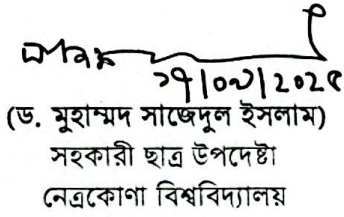 ২৭/০৮/২০২৫
(ড. মুহাম্মদ সাজেদুল ইসলাম)
সহকারী ছাত্র উপদেষ্টা
নেত্রকোণা বিশ্ববিদ্যালয়